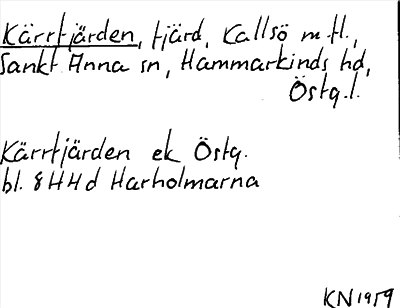 Kärrtjärden, fjärd, Kallsö m.fl.,
Sankt Anna sn, Hammarkinds hd,
Östg.l.
Kärrtjärden ek Östg.
bl. 8H4d Harholmarna
KN1959